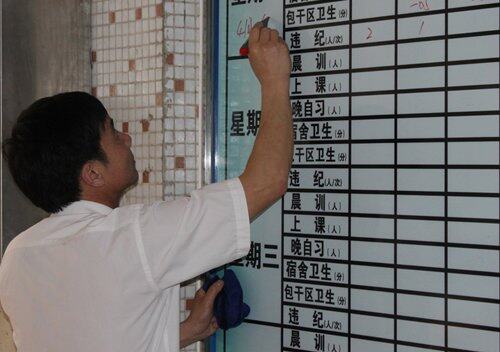 星期
宿舍卫生(分) -0.5
包干区卫生(分)
违 纪(人/次) 2 1
晨 训(人)
上 课(人)
晚自习(人)
星期
宿舍卫生(分)
包干区卫生(分)
违 纪(人/次)
晨 训(人)
上 课(人)
晚自习(人)
星期三
宿舍卫生(分)
包干区卫生(分)
违 纪(人/次)
晨 训(人)